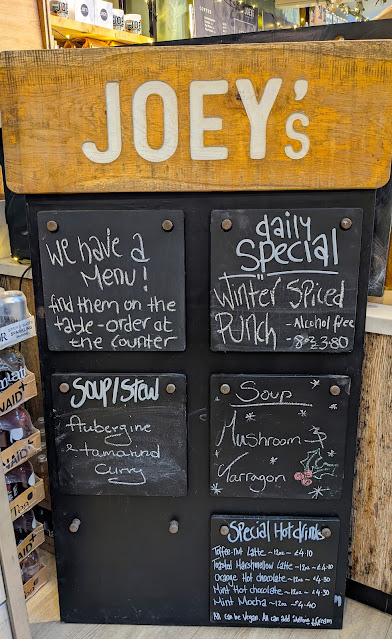 JOEY's
We have a
Menu!
find them on the
table - order at
the counter
daily
Special
Winter Spiced
Punch - Alcohol free
- 8oz 3.80
SOUP/STEW
Aubergine
& tamarind
Curry
Soup
Mushroom &
Tarragon
Special Hot drinks
Toffee-nut Latte - 12oz - £4.10
Toasted Marshmallow Latte - 12oz - £4.10
Orange Hot chocolate - 12oz - £4.30
Mint Hot chocolate - 12oz - £4.30
Mint Mocha - 12oz - £4.40
All can be Vegan. All can add